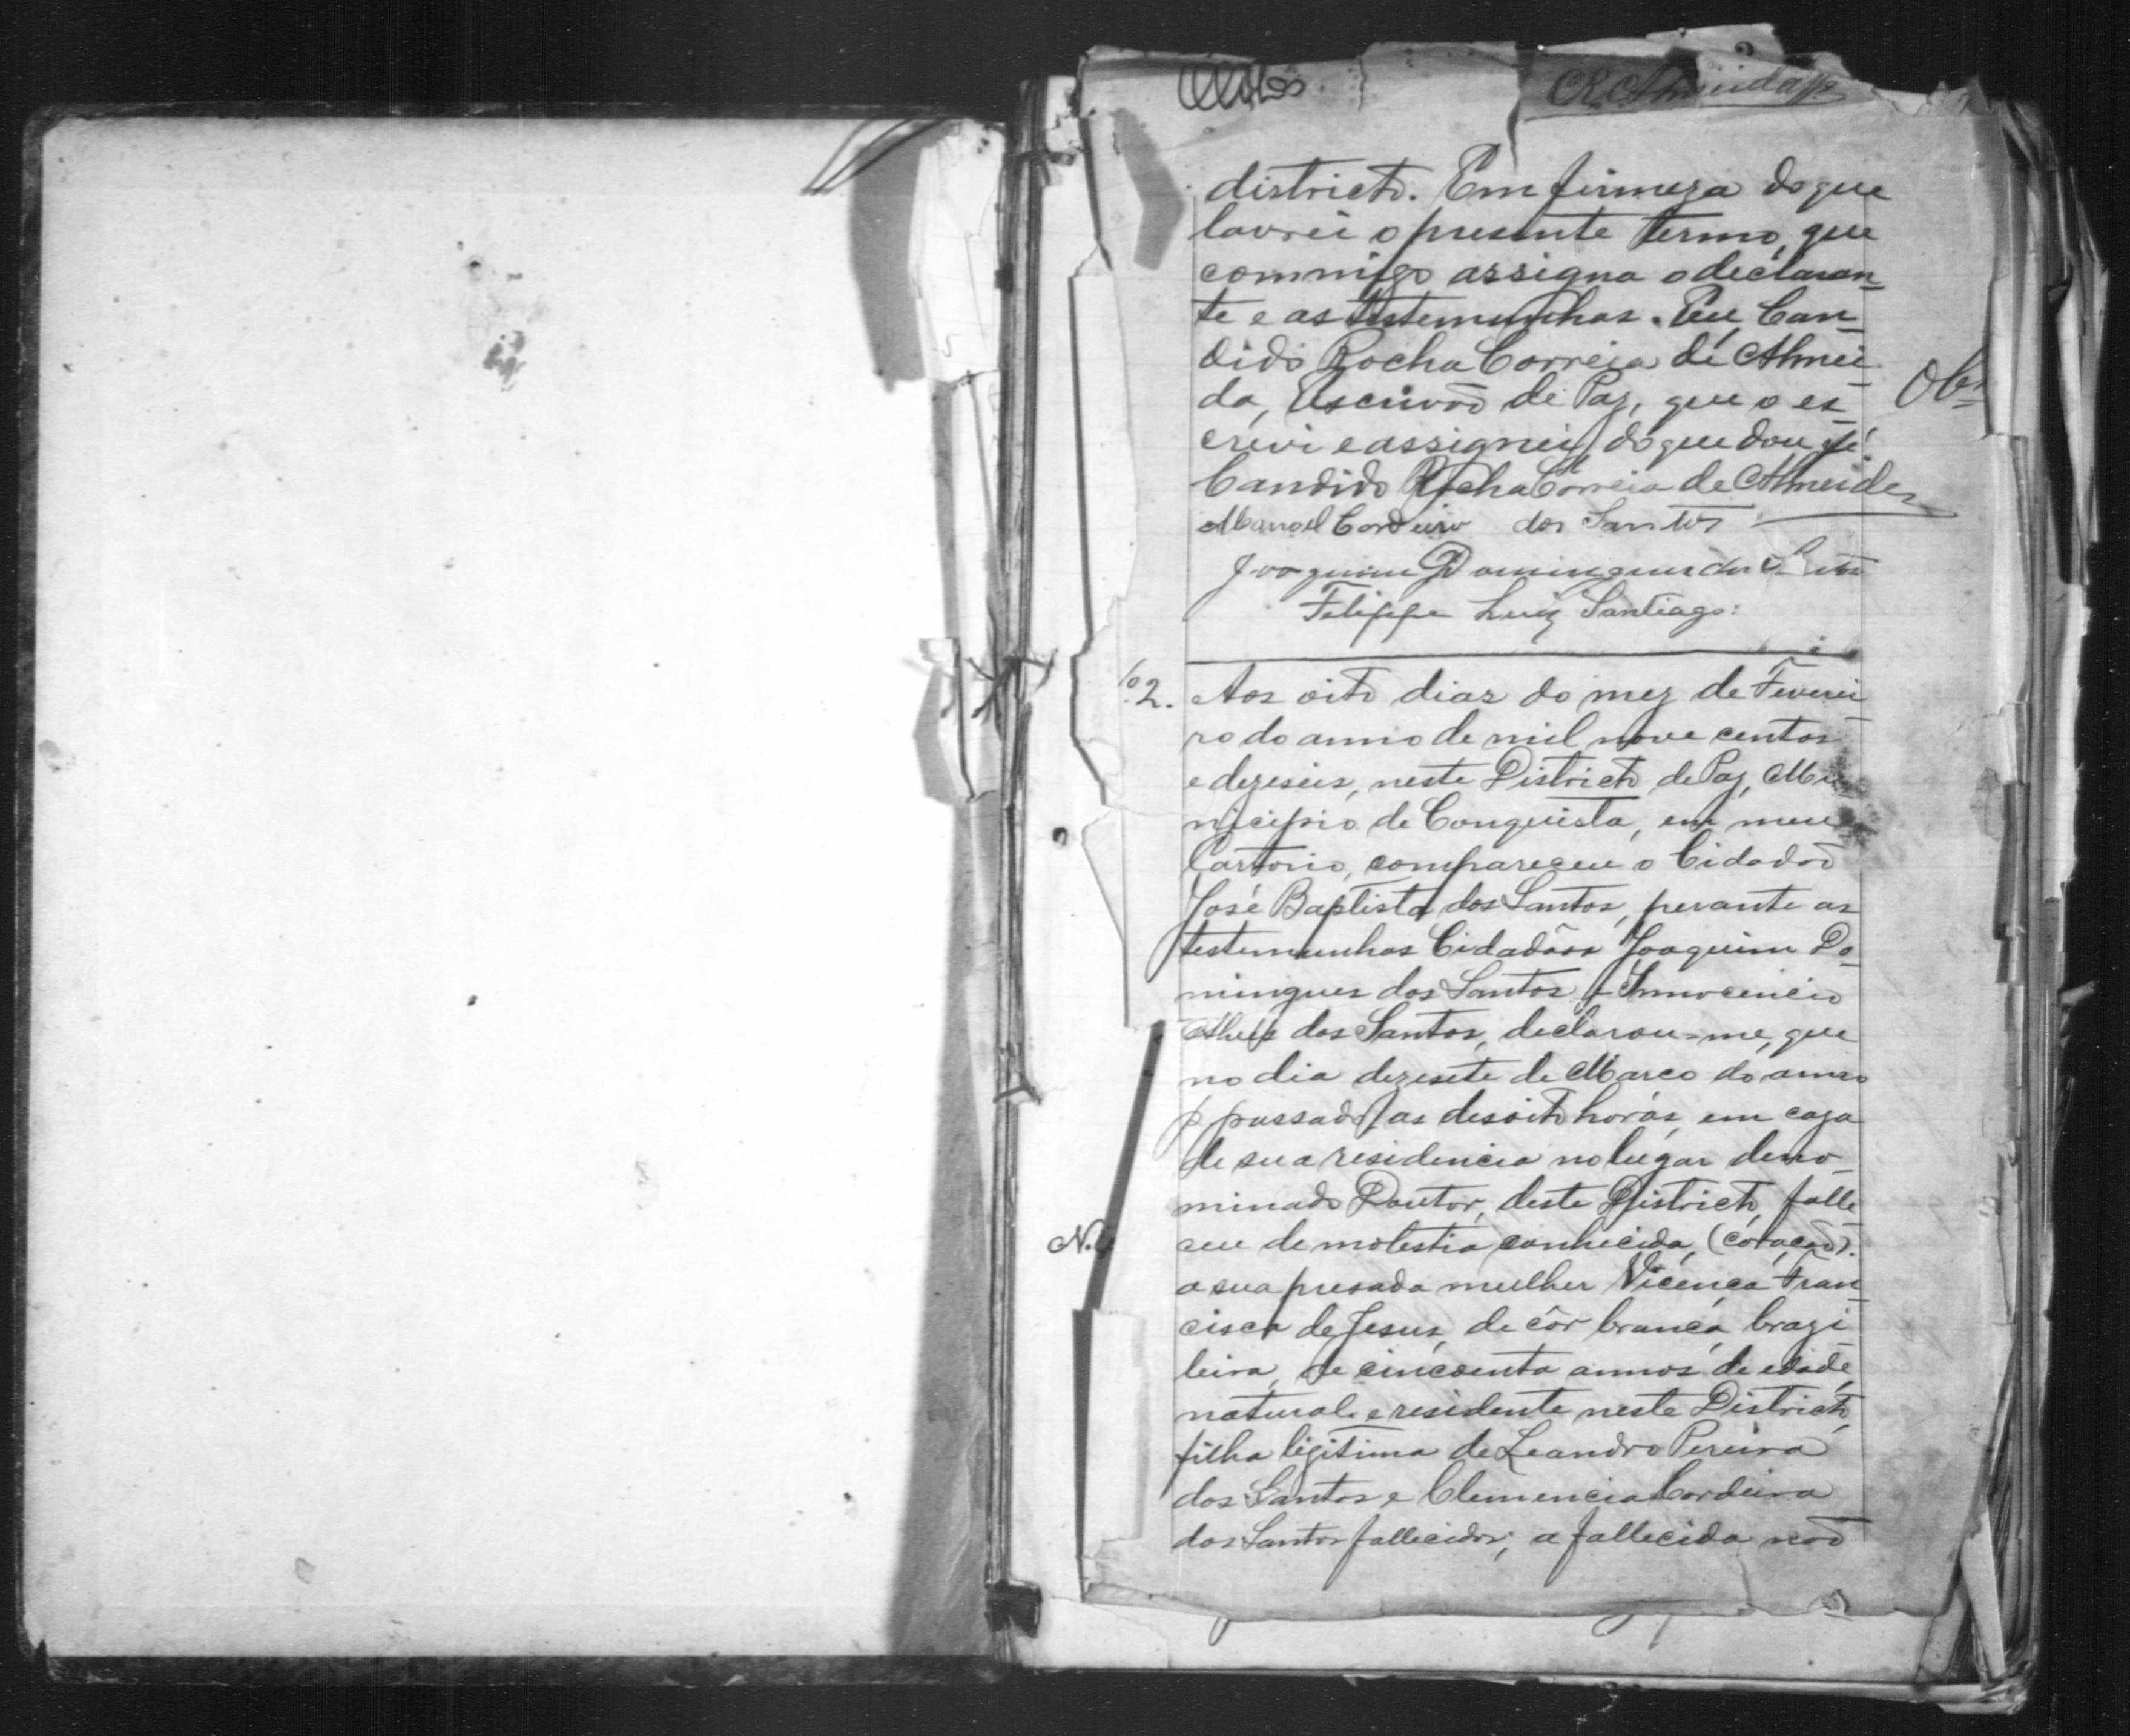 districto. Em firmeza do que
lavrei o presente termo, que
commigo assigna o declaran_
te e as testemunhas. Eu, Can_
dido Rocha Correia de Almei_
da, Escrivão de Paz, que o es_
crevi e assignei, do que dou fé
Candido Rocha Correia de Almeida
Manoel Cordeiro dos Santos
Joaquim Domingues dos
Filippe Luiz Santiago:
2. Aos oito dias do mez de Feverei_
ro do anno de mil nove centos
e dezeseis, neste Districto de Paz, Mu
nicipio de Conquista, em meu
Cartorio, compareceu o Cidadão
José Baptista dos Santos, perante as
testemunhas Cidadãos Joaquim Do_
mingues dos Santos e Innocencio
Alves dos Santos, declarou=me, que
no dia dezesete de Março do anno
p passado, as desoito horas, em caza
de sua residencia no lugar deno_
minado Doutor, deste Districto, falle_
ceu de molestia conhecida, (coração).
a sua presada mulher Vicença Fran_
cisca de Jesus, de côr branca, brazi_
leira, de cincoenta annos de edade,
natural e residente neste Districto,
filha ligitima de Leandro Pereira
dos Santos e Clemencia Cordeira
dos Santos fallecidos; a fallecida não